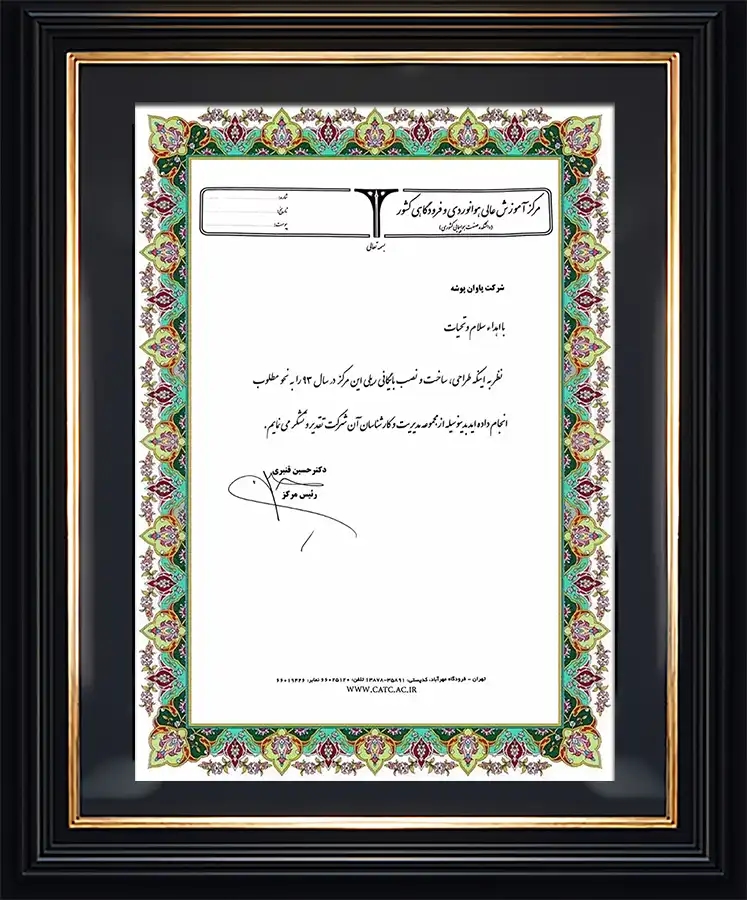 مرکز آموزش عالی هوانوردی و فرودگاهی کشور
(دانشکده صنعت هواپیمائی کشوری)
شماره:
تاریخ:
پیوست:
بسمه تعالی
شرکت پاوان پوشه
با اهداء سلام و تحیات
نظر به اینکه طراحی، ساخت و نصب بایگانی ریلی این مرکز در سال ۹۳ را به نحو مطلوب
انجام داده اید بدینوسیله از مجموعه مدیریت و کارشناسان آن شرکت تقدیر و تشکر می نمایم.
دکتر حسین قنبری
رئیس مرکز
تهران - فرودگاه مهرآباد، کدپستی: ۳۵۸۹۱-۱۳۸۷۸ تلفن: ۶۶۰۲۵۱۲۰ نمابر: ۶۶۰۱۹۴۲۶
WWW.CATC.AC.IR